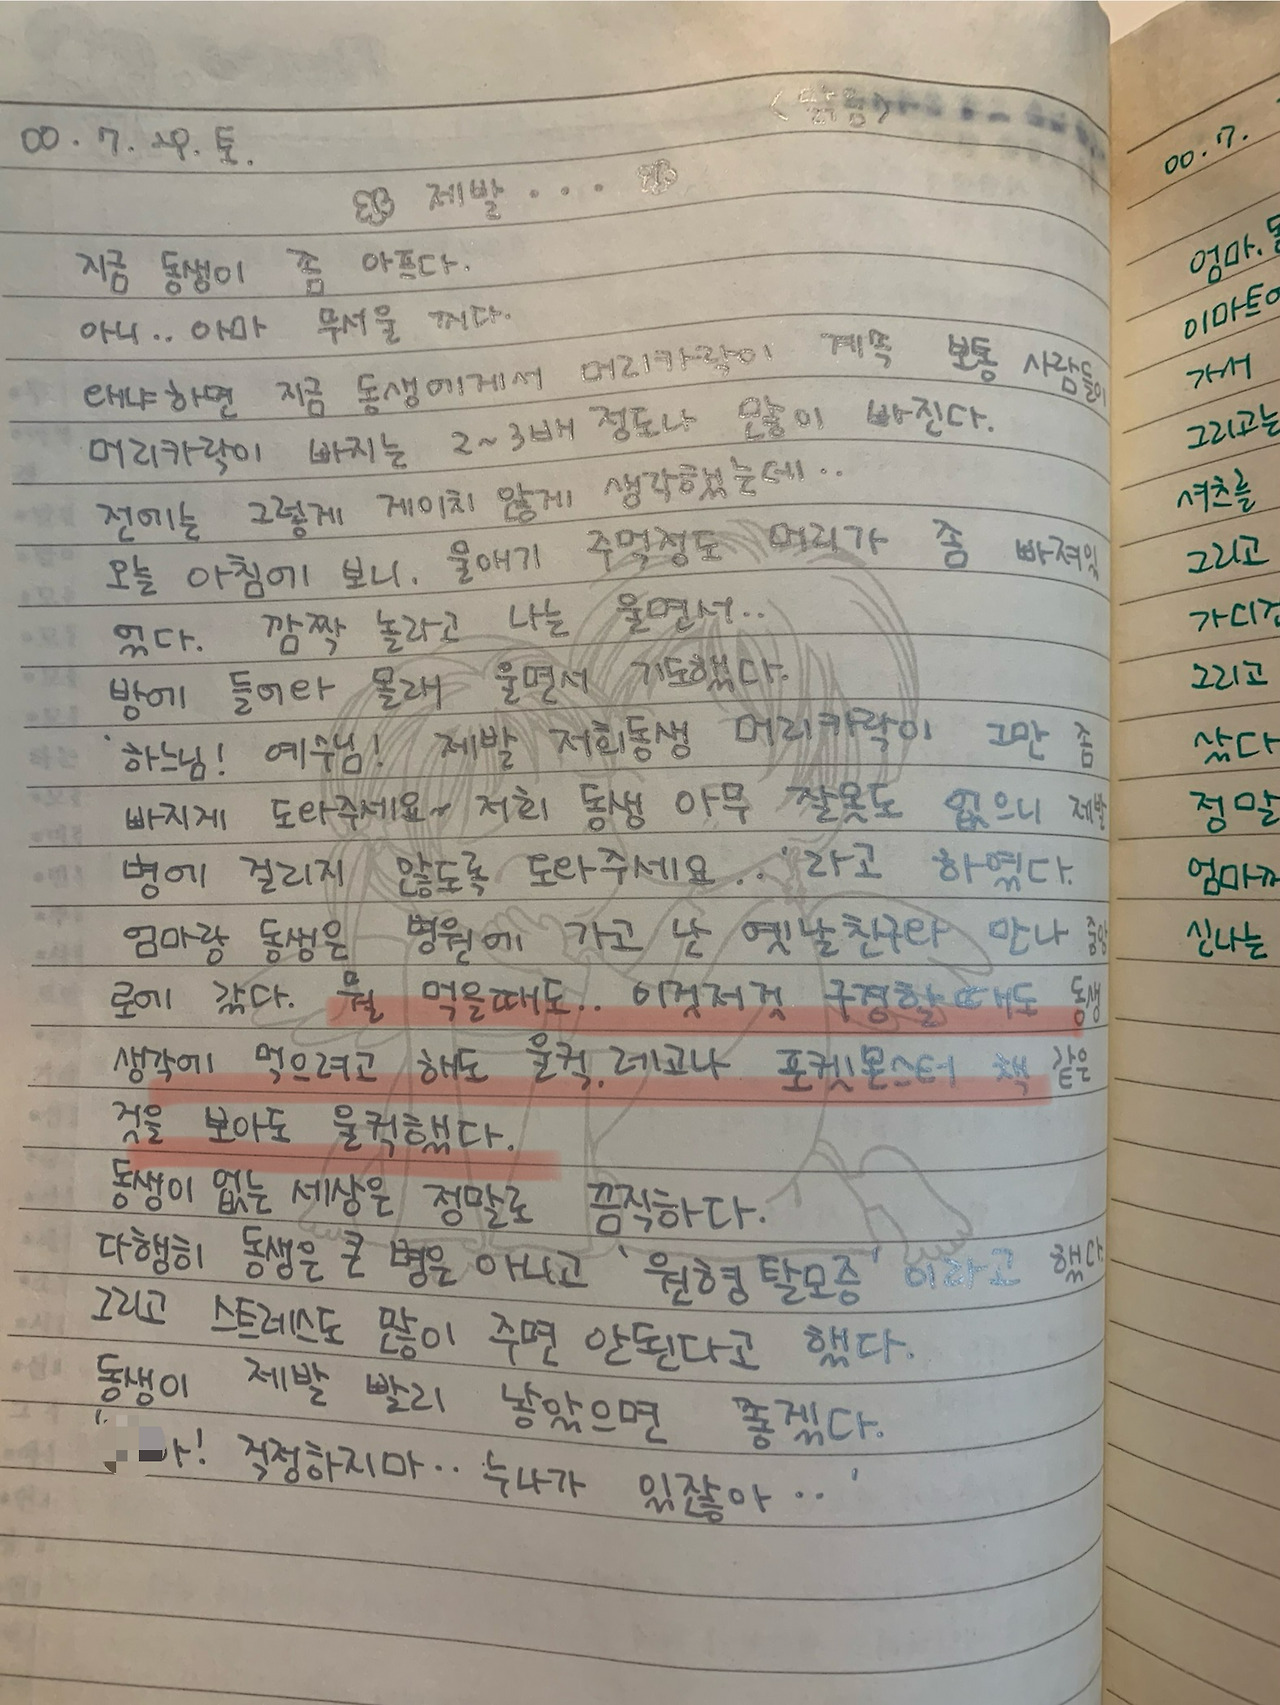 <맑음>
00. 7. 29. 토.
제발 . . .
지금 동생이 좀 아프다.
아니.. 아마 무서울 꺼다.
왜냐하면 지금 동생에게서 머리카락이 계쪽 보통 사람들이
머리카락이 빠지는 2~3배 정도나 많이 빠진다.
전에는 그렇게 게이치 않게 생각했는데..
오늘 아침에 보니. 울애기 주먹정도 머리가 좀 빠져있
었다. 깜짝 놀라고 나는 울면서..
방에 들어와 몰래 울면서 기도했다.
'하느님! 예수님! 제발 저희동생 머리카락이 그만 좀
빠지게 도와주세요~ 저희 동생 아무 잘못도 없으니 제발
병에 걸리지 않도록 도와주세요..'라고 하였다.
엄마랑 동생은 병원에 가고 난 옛날친구와 만나 중앙
로에 갔다. 뭘 먹을때도.. 이것저것 구경할때도 동생
생각에 먹으려고 해도 울컥. 레고나 포켓몬스터 책 같은
것을 보아도 울컥했다.
동생이 없는 세상은 정말로 끔직하다.
다행히 동생은 큰 병은 아니고 '원형탈모증'이라고 했다
그리고 스트레스도 많이 주면 안된다고 했다.
동생이 제발 빨리 낳았으면 좋겠다.
아! 걱정하지마.. 누나가 있잖아..'
00. 7.
엄마.
이마트에
가서
그리고는
셔츠를
그리고
가디건
그리고
샀다
정말
엄마가
신나는